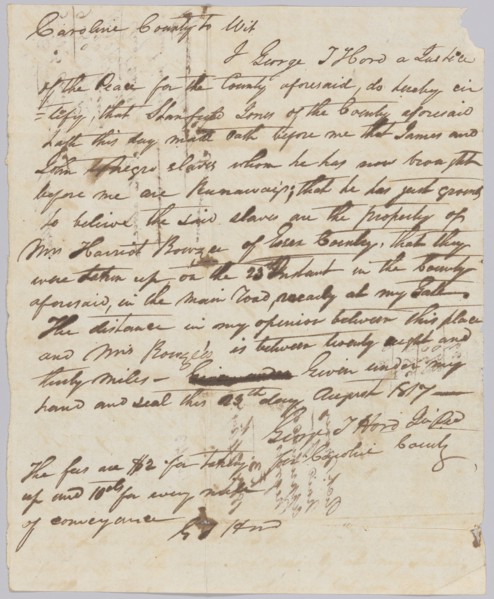 Caroline County to Wit
I George T Hord a Justice
of the Peace for the County aforesaid, do hereby cer
=tefy, that Stanfield Jones of the County aforesaid
hath this day made Oath before me that James and
John negro slaves whom he has now brought
before me are Runaways; that he has just grounds
to belive the said slaves are the property of
Mrs Harriot Rowzee of Essex County, that they
were taken up on the 23d Instant in the County
aforesaid, in the main road, nearly at my Gate
The distance in my opinion between this place
and Mrs Rowzee's is between twenty eight and
thirty miles — Given under my
hand and seal this 23th day August 1817 —
George T Hord
for Caroline County
The fees are $2 for taking
up and 10cts for every mile
of conveyance
G T Hord